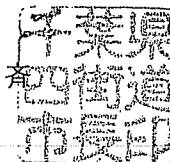 千葉県
四街道
市長印
斉